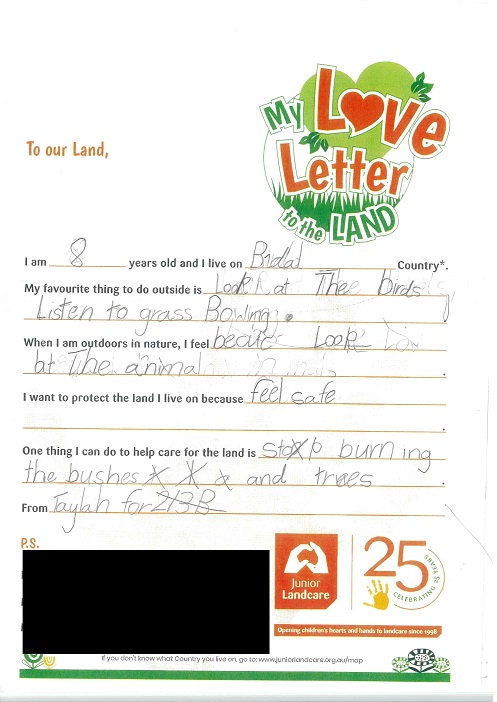 My Love
Letter
to the LAND
To our Land,
I am 8 years old and I live on Bidlal Country*.
My favourite thing to do outside is Look at Thee Birds
Listen to grass Bowling.
When I am outdoors in nature, I feel Look
at The animal
I want to protect the land I live on because feel safe
.
One thing I can do to help care for the land is stop burning
the bushes and trees .
From Taylah for 2/3B
P.S.
Junior
Landcare
25
CELEBRATING 25 YEARS
Opening children's hearts and hands to landcare since 1998
If you don't know what Country you live on, go to: www.juniorlandcare.org.au/map